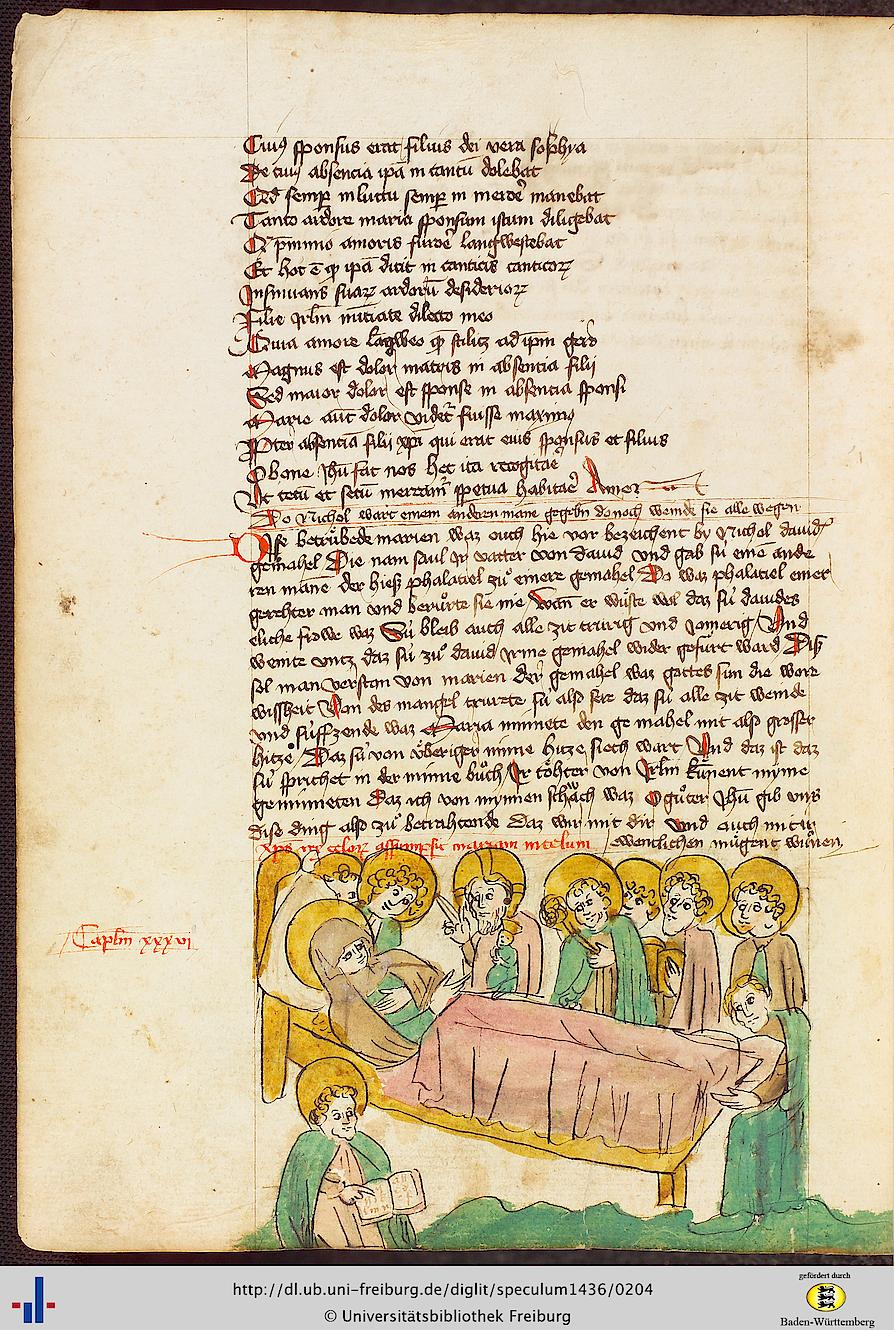 Cui9 sponsus erat filius dei vera sophya
De cui9 absencia ip̄a in tantū dolebat
Sed semp̲ in luctu semp̲ in mero᷑e manebat
Tanto ardore maria sponsum istum diligebat
Q p̄nimio amoris furo᷑e langwescebat
Et hoc ē qp ip̄a dicit in canticis canticoꝝ
Insinuans suaꝝ ardorū desiderioꝝ
Filie Irlm̄ nūciate dilecto meo
Quia amore lāgweo qp̄ ad ip̄m
Magnus est dolor matris in absencia filii
Sed maior dolor est sponse in absencia sponsi
Marie aūt dolor videt᷑ fuisse maximo
Pter absenciā filii xp̄i qui erat eius sponsus et filius
O bone Ihū fac nos hec ita recogita᷑e
Ut tecū et secū meream᷑ ppetua habita᷑e Amen
Do Michol wart einem anderen mane gegebn̄ do noch weinde sie alle wegen
Dise betrůbede marien waz ouch hie vor bezeichent by Michol dauid᷑
gemahel Die nam saul Ir vatter von dauid vnd gab sú eine ande
ren māne der hiesz phalatiel zů einere gemahel Do waz phalatiel einer
gerehter man vnd berůrte sie nie wan er wúste wol daz sú dauides
eliche frowe waz Sú bleib auch alle zit trurig vnd Jomerig Vnd
weinte vntz daz sú zů dauid irme gemahel wider gefúrt ward Disz
sol man verston von marien der gemahel waz gottes sun die wore
wissheit Von des mangel trurete sú also sere daz sú alle zit weinde
vnd súffzende waz Maria minnete den ge mahel mit also grosser
hitze Daz sú von v̊beriger minne hitze siech wart Vnd daz ist daz
sú sprichet in der minne bůch Ir tôhter von Irlm̄ kúnent myme
geminneten Daz ich von mynnen schwach waz O gůter Ihū gib vns
dise ding also zů betrahtende Daz wir mit dir vnd ouch mit ir
ewenclichen múgent wonen
xp̄s rex celoꝝ assumpsit mariam in celum
Capl̄m xxxvi
http://dl.ub.uni-freiburg.de/diglit/speculum1436/0204
© Universitätsbibliothek Freiburg
gefördert durch
Baden-Württemberg